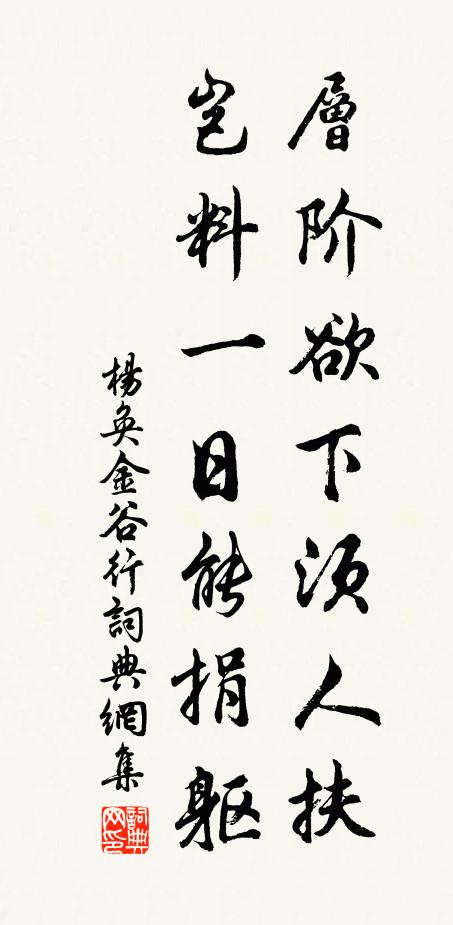 層阶欲下须人扶
岂料一日能捐躯
楊奂金谷行詞典網集
詞典网印